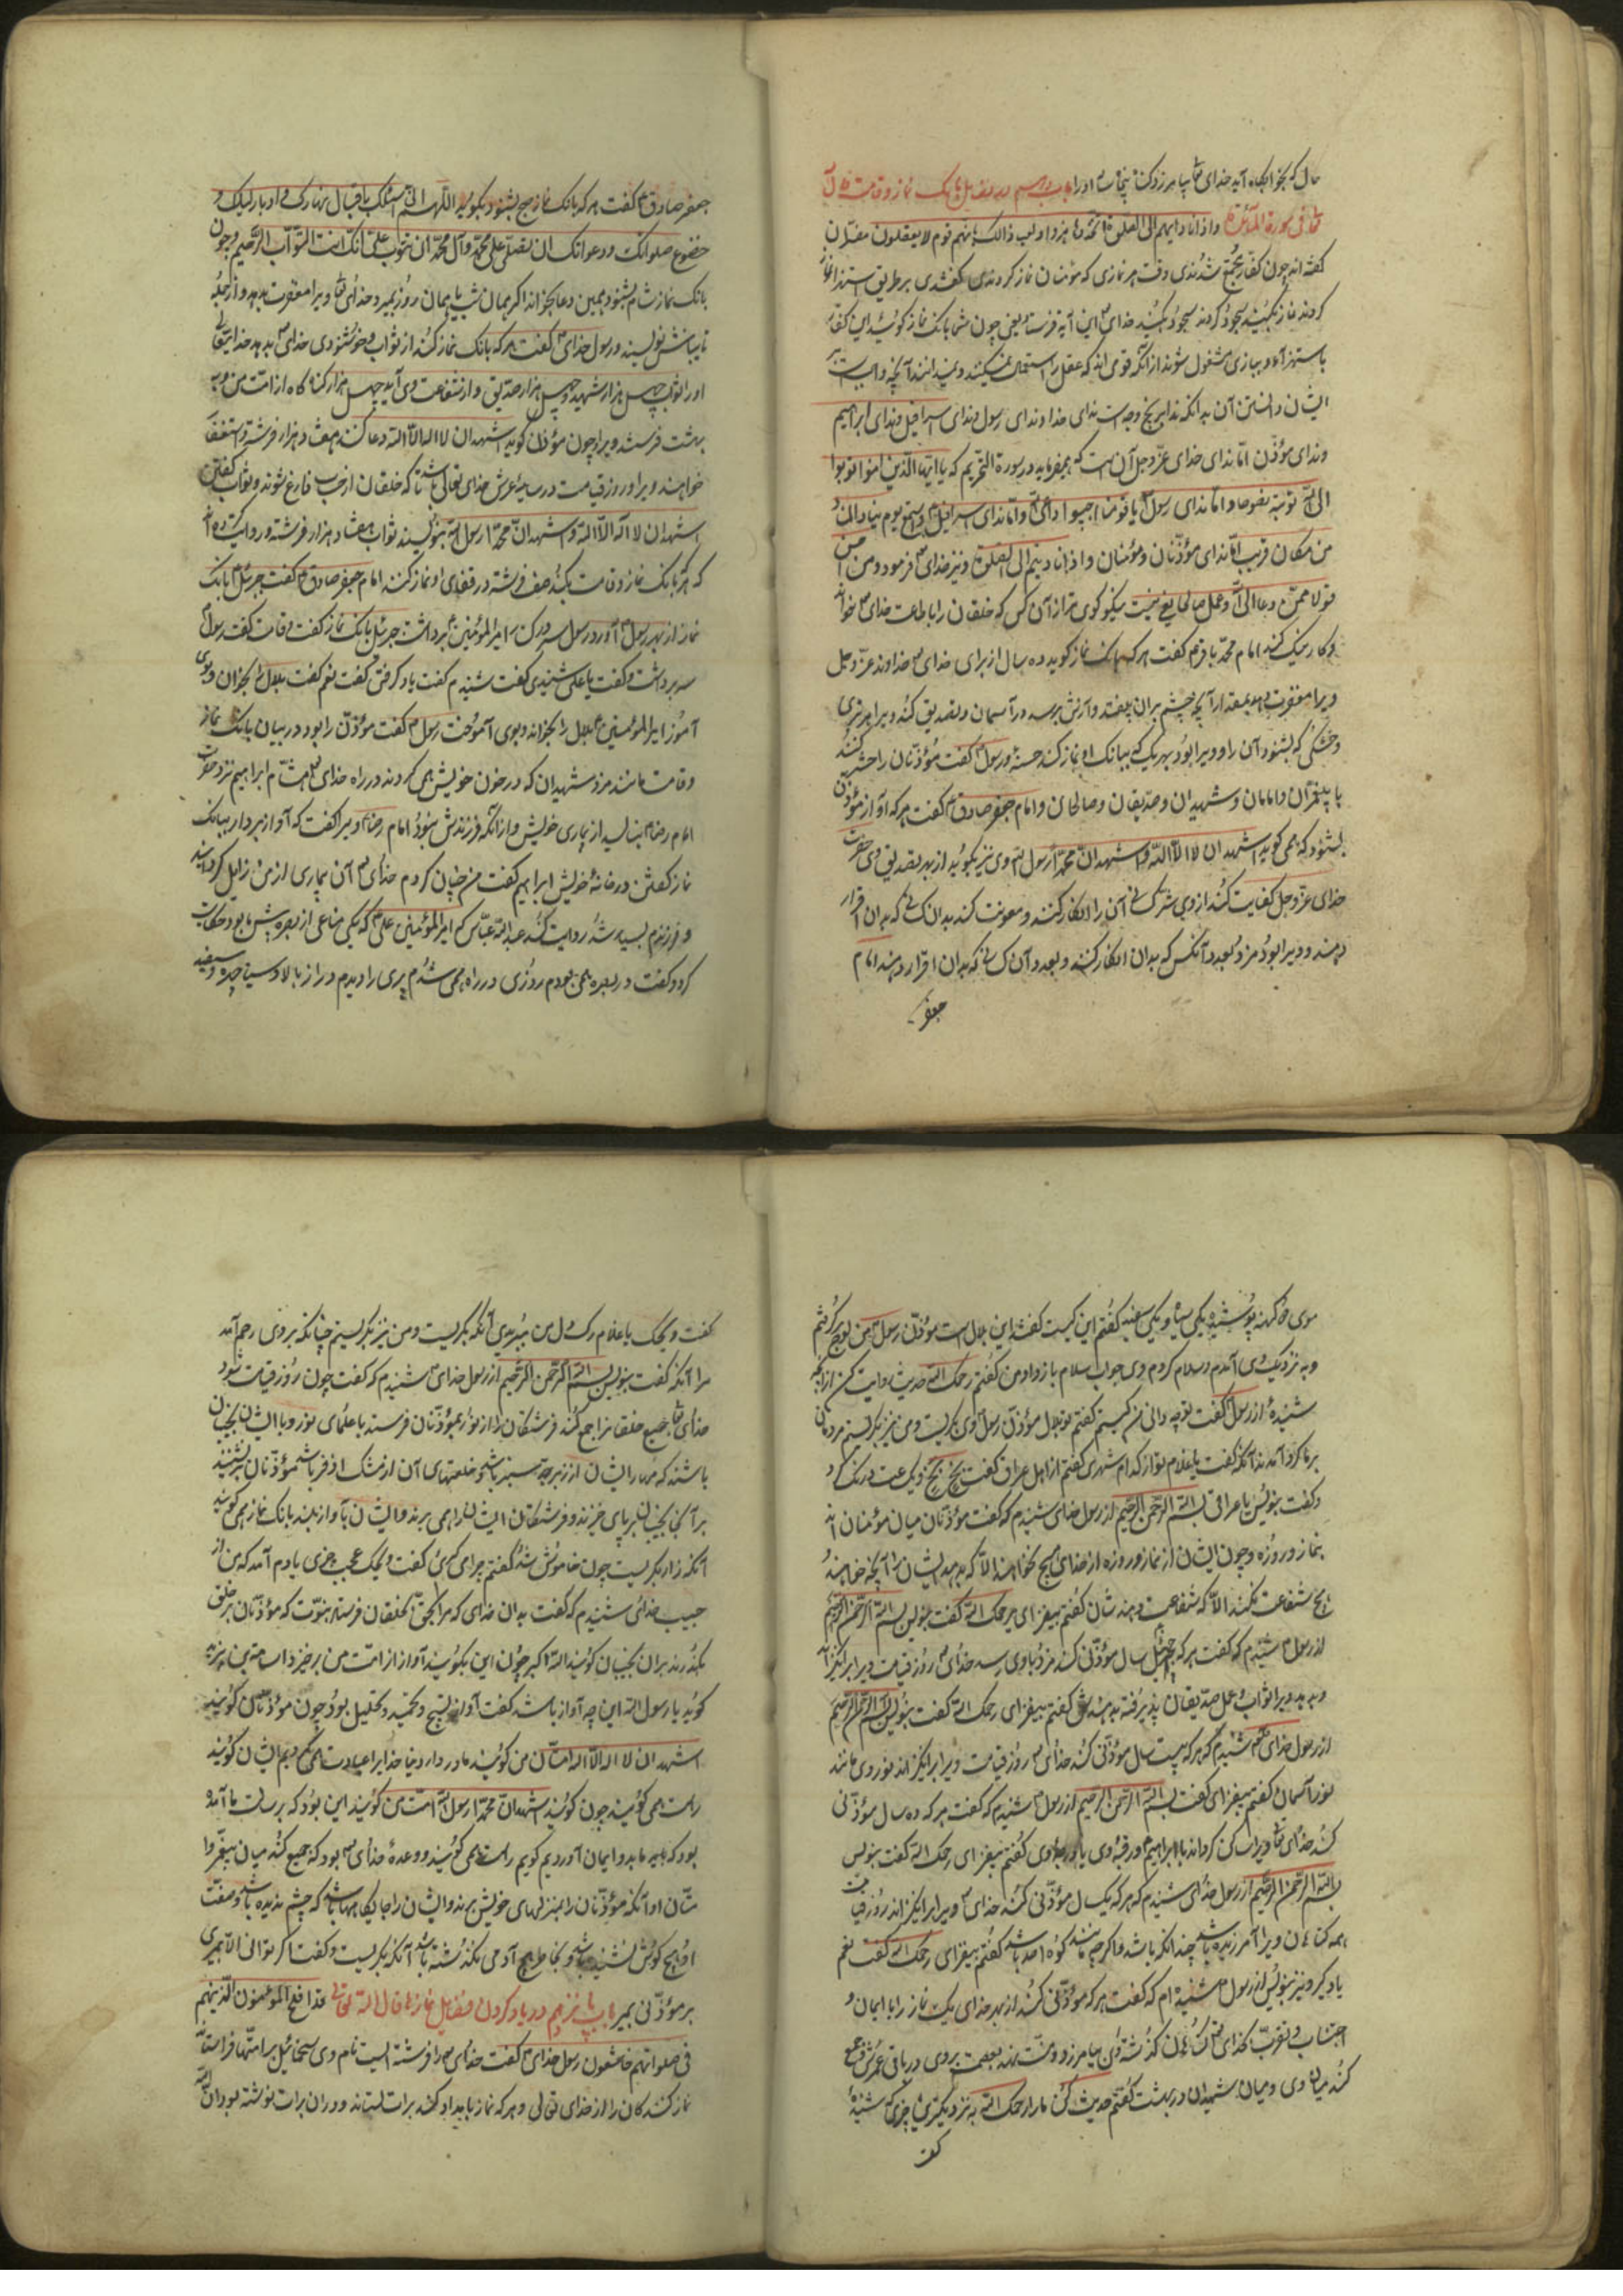 حال که بخوابگاه آید خدای تعا بیامرزد گناه پنجاه ساله اورا باب در فضایل بانک نماز و قامت قال الله
تعا فی سورة المائدة واذا نادیتم الی الصلوة اتخذوها هزوا ولعبا ذالک بانهم قوم لا یعقلون مفسران
گفته اند چون کفار مجتمع شدندی وقت هر نمازی که مؤمنان نماز کردندی گفتندی بر طریق استهزا
کردند نماز نکنید سجود کردند سجود نکنید خدای این آیه فرستاد یعنی چون شما بانک نماز کوئید این کفار
باستهزا و ببازی مشغول شوند از انکه قومی اند که عقل را استعمال نمیکنند و نمیدانند آنچه واجبست بر
ایشان دانستن آن بدانکه ندا بر پنج وجه است ندای خدا و ندای رسول و ندای اسرافیل و ندای ابراهیم
و ندای مؤذن اما ندای خدای عز و جل آن است که میفرماید در سورة التحریم که یا ایها الذین امنوا توبوا
الی الله توبة نصوحا و اما ندای رسول یا قومنا اجیبوا داعی الله و اما ندای اسرافیل واستمع یوم یناد المناد
من مکان قریب اما ندای مؤذنان و مؤمنان و اذا نادیتم الی الصلوة و نیز خدای فرمود و من احسن
قولا ممن دعا الی الله و عمل صالحا یعنی نیست نیکو گوی تر از آن کس که خلقان را باطاعت خدای خواند
و کار نیک کند امام محمد باقر گفت هر که بانک نماز کوید ده سال از برای خدای خداوند عز و جل
ویرا مغفرت دهد بمقدار آنچه چشم بران بیفتد و آوازش برسد در آسمان و تصدیق کند ویرا هر تری
و خشکی که بشنود آن را و ویرا بود بهر یک که ببانک او نماز کند حسنه و رسول گفت مؤذنان را حشر کنند
با پیغمبران و امامان و شهیدان و صدیقان و صالحان و امام جعفر صادق گفت هر که آواز مؤذن
بشنود که همی کوید اشهد ان لا اله الا الله و اشهد ان محمدا رسول الله وی نیز بکوید از بهر تصدیق وی حضرت
خدای عز و جل کفایت کند از وی شر کسانی آن را انکار کنند و معونت کند بدان کسانی که بدان اقرار
دهند و ویرا بود مزد بعدد آنکس که بدان انکار کنند و بعدد آن کسانی که بدان اقرار دهند امام
جعفر
جعفر صادق گفت هر که بانک نماز صبح بشنود بکوید اللهم انی اسئلک باقبال نهارک و ادبار لیلک و
حضور صلواتک و دعواتک ان تصلی علی محمد وآل محمد ان تتوب علی انک انت التواب الرحیم و چون
بانک نماز شام بشنود همین دعا بخواند اگر همان شب یا همان روز بمیرد خدای تعا ویرا مغفرت بدهد و از جمله
تایبانش نویسند و رسول خدای گفت هر که بانک نماز کند از ثواب و خوشنودی خدای بدهد خدایتعالی
اورا ثواب چهل هزار شهید و چهل هزار صدیق و از شفاعت وی آید چهل هزار کناه کار از امت من و به
بهشت فرستد ویرا و چون مؤذن کوید اشهد ان لا اله الا الله دعا کنند هفتاد هزار فرشته و استغفار
خواهند ویرا و روز قیامت در سایهٔ عرش خدای تعالی باشد تا که خلقان از حساب فارغ شوند و ثواب گفتن
اشهد ان لا اله الا الله و اشهد ان محمدا رسول الله بنویسند ثواب هفتاد هزار فرشته و روایت کرده اند
که هر که بانک نماز و قامت بکند صف فرشته در قفای او نماز کنند امام جعفر صادق گفت جبرئیل بانک
نماز از بهر رسول آورد و رسول سر در کنار امیر المؤمنین برداشت جبرئیل بانک نماز گفت و قامت گفت رسول
سر برداشت و گفت یا علی شنیدی گفت شنیدم گفت یاد گرفتی گفت نعم گفت بلال را بخوان و بوی
آموز امیر المؤمنین بلال را بخواند و بوی آموخت رسول گفت مؤذن را بود در بیان بانک نماز
و قامت مانند مزد شهیدان که در خون خویش همی کردند در راه خدای هشام ابراهیم نزد حضرت
امام رضا بنالید از بیماری خویش و از انکه فرزندش نبود امام رضا ویرا گفت که آواز بردار ببانک
نماز گفتن در خانهٔ خویش ابراهیم گفت من چنان کردم خدای آن بیماری از من زایل کردانید
و فرزندم بسیار شد روایت کند عبد الله عباس که امیر المؤمنین علی که یکی متاعی از بصره پیش ما بود حکایت
کرد و گفت در بصره همی بودم روزی در راه همی شدم پیری را دیدم دراز بالا و سیاه چرده و سفید
موی جامهٔ کهنه پوشیده یکی سیاه و یکی سفید گفتم این کیست گفتند این بلال است مؤذن رسول من لوح برگرفتم
و به نزدیک وی آمدم و سلام کردم وی جواب سلام باز داد و من گفتم رحمک الله حدیث روایت کن از آنچه
شنیدهٔ از رسول گفت تو چه دانی من کیستم گفتم تو بلال مؤذن رسول وی بگریست و من نیز بگریستم مردمان
بر ما گرد آمدند آنکه گفت یا غلام تو از کدام شهری گفتم از اهل عراق گفت بخ بخ بخ و یک ساعت درنگ کرد
و گفت بنویس یا عراقی بسم الله الرحمن الرحیم از رسول خدای شنیدم که گفت مؤذنان میان مؤمنان اند
بنماز و روزه و چون ایشان از نماز و روزه از خدای هیچ نخواهند الا که بدهد ایشان را آنچه خواهند و
هیچ شفاعت نکنند الا که شفاعت دهند شان گفتم بیفزای یرحمک الله گفت بنویس بسم الله الرحمن الرحیم
از رسول شنیدم که گفت هر که چهل سال مؤذنی کند مزد باوی رسد خدای روز قیامت ویرا برانگیزاند
و بدهد ویرا ثواب عمل صدیقان پذیرفته گفتم بیفزای رحمک الله گفت بنویس بسم الله الرحمن الرحیم
از رسول خدای شنیدم که هر که بیست سال مؤذنی کند خدای روز قیامت ویرا برانگیزاند نور وی مانند
نور آسمان گفتم بیفزای گفت بسم الله الرحمن الرحیم از رسول شنیدم که گفت هر که ده سال مؤذنی
کند خدای تعا ویرا ساکن کرداند با ابراهیم در قبهٔ وی یا در جای وی گفتم بیفزای رحمک الله گفت بنویس
بسم الله الرحمن الرحیم از رسول خدای شنیدم که هر که یک سال مؤذنی کند خدای ویرا برانگیزاند روز قیامت
همه گناهان ویرا آمرزیده باشد چندانکه باشد و اگر چه مانند کوه احد باشد گفتم بیفزای رحمک الله گفت نعم
یاد گیر و نیز بنویس از رسول شنیده ام که گفت هر که مؤذنی کند از بهر خدای یک نماز را با ایمان و
احتساب و تقرب بخدای تعا گناهان گذشته وی بیامرزد و منت نهد بعصمت بر وی در باقی عمرش و جمع
کند میان وی و میان شهیدان در بهشت گفتم حدیث کن ما را رحمک الله به نزدیکترین چیزی که شنیدهٔ
گفت
گفت ویحک یا غلام رگ دل من ببریدی آنکه بگریست و من نیز بگریستم چنانکه بر وی رحم آمد
مرا آنکه گفت بنویس بسم الله الرحمن الرحیم از رسول خدای شنیدم که گفت چون روز قیامت بود
خدای تعا جمیع خلقانرا جمع کند فرشتگان را از نور بمؤذنان فرستد با علمهای نور و با ایشان نجیبان
باشند که مهار ایشان از زبرجد سبز باشد و خلعتهای آن از مشک اذفر باشد مؤذنان بنشینند
بر آن نجیبان بر پای خیزند و فرشتگان ایشان را همی برند و ایشان بآواز بلند بانک نماز همی کویند
آنکه زار بگریست چون خاموش شد گفتم چرا می گریی گفت ویحک عجب چیزی یادم آمد که من از
حبیب خدای شنیدم که گفت بدان خدای که مرا بحق بخلقان فرستاد بنبوت که مؤذنان بر خلق
بگذرند بران نجیبان کویند الله اکبر چون این بکویند آواز از امت من برخیزد اسامة بن زید
کوید یا رسول الله این چه آواز باشد گفت آواز تسبیح و تحمید و تهلیل بود چون مؤذنان کویند
اشهد ان لا اله الا الله امتان من کویند ما در دار دنیا خدایرا عبادت همی کردیم ایشان کویند
راست همی کویند چون کویند اشهد ان محمدا رسول الله امت من کویند این بود که برسالت بما آمده
بود که ما بدو ایمان آوردیم کویم راست همی کویند و وعدهٔ خدای بود که جمع کند میان پیغمبر و
متان او آنکه مؤذنان را بمنزلهای خویش برند و ایشان را جایگاهها باشد که چشم ندیده باشد و صفت
او هیچ گوش نشنیده باشد و بخاطر هیچ آدمی نگذشته باشد آنکه بگریست و گفت اگر توانی الا بمیری
بر مؤذنی بمیر باب پانزدهم در یاد کردن فضایل نماز قال الله تعالی قد افلح المؤمنون الذین هم
فی صلواتهم خاشعون رسول خدای گفت خدای را فرشته ایست نام وی سخائیل برامتها فراستاند
نماز کنندگان را از خدای تعالی و هر که نماز بامداد کند برات بستاند و در ان برات نوشته بود ان الله